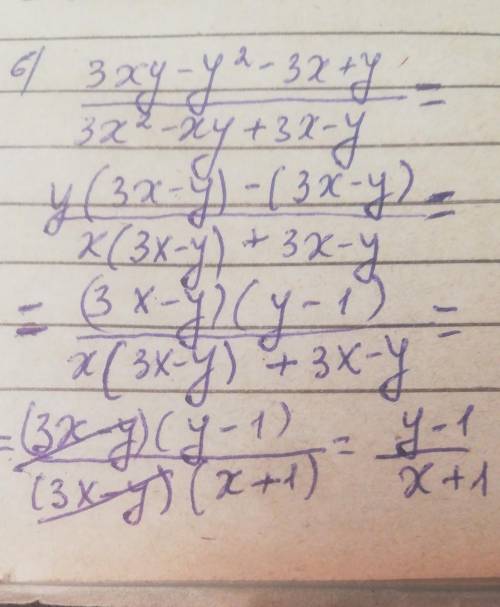 б) (3xy - y² - 3x + y) / (3x² - xy + 3x - y) =
(y(3x - y) - (3x - y)) / (x(3x - y) + 3x - y) =
= ((3x - y)(y - 1)) / (x(3x - y) + 3x - y) =
= ((3x - y)(y - 1)) / ((3x - y)(x + 1)) = (y - 1) / (x + 1)